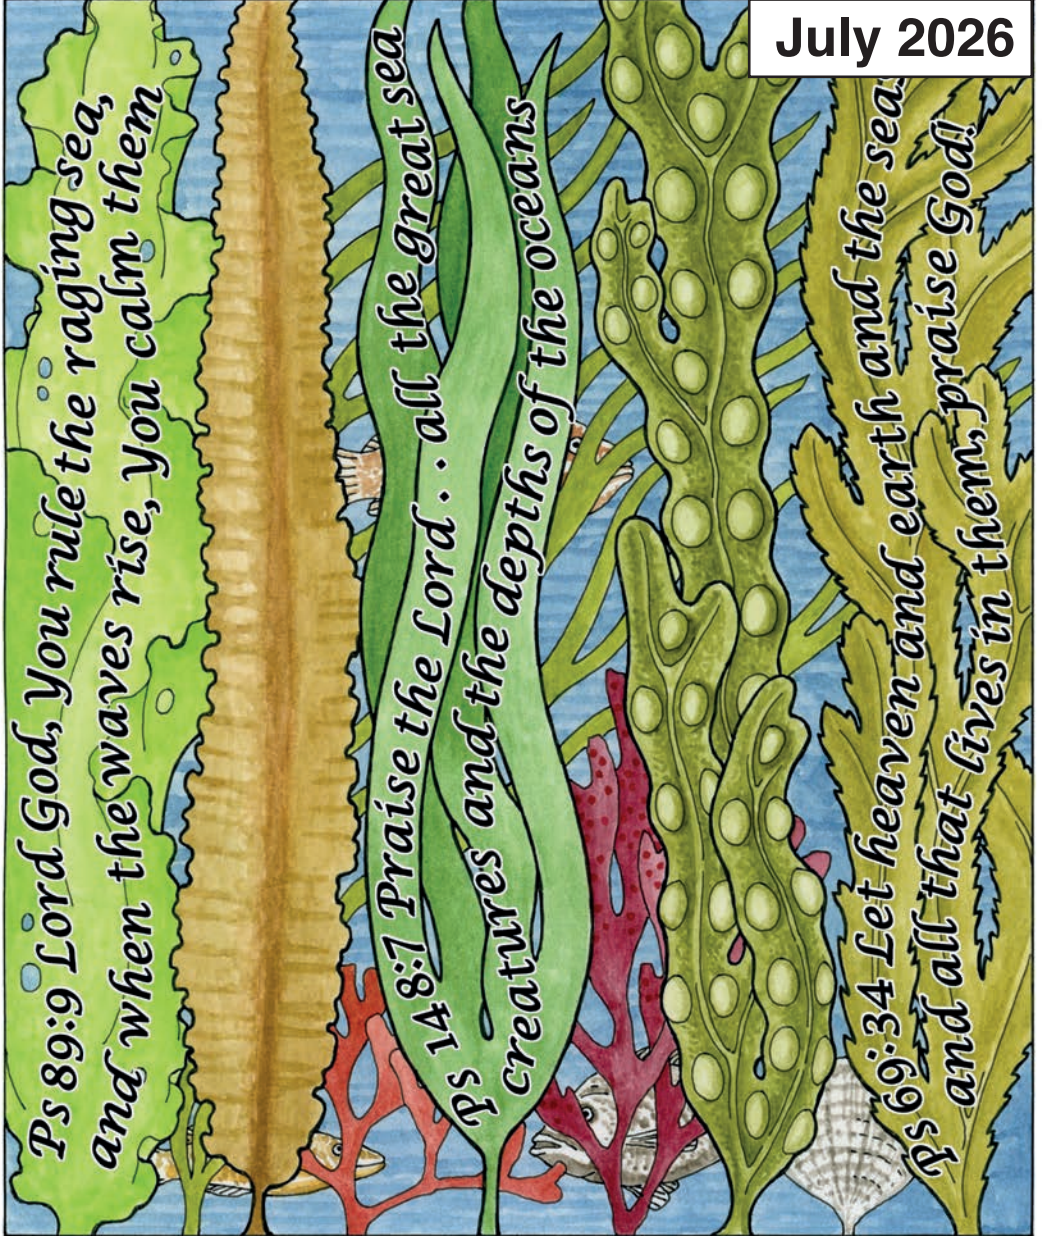 July 2026
Ps 89:9 Lord God, You rule the raging sea,
and when the waves rise, You calm them
Ps 148:7 Praise the Lord . . . all the great sea
creatures and the depths of the oceans
Ps 69:34 Let heaven and earth and the seas
and all that lives in them, praise God!